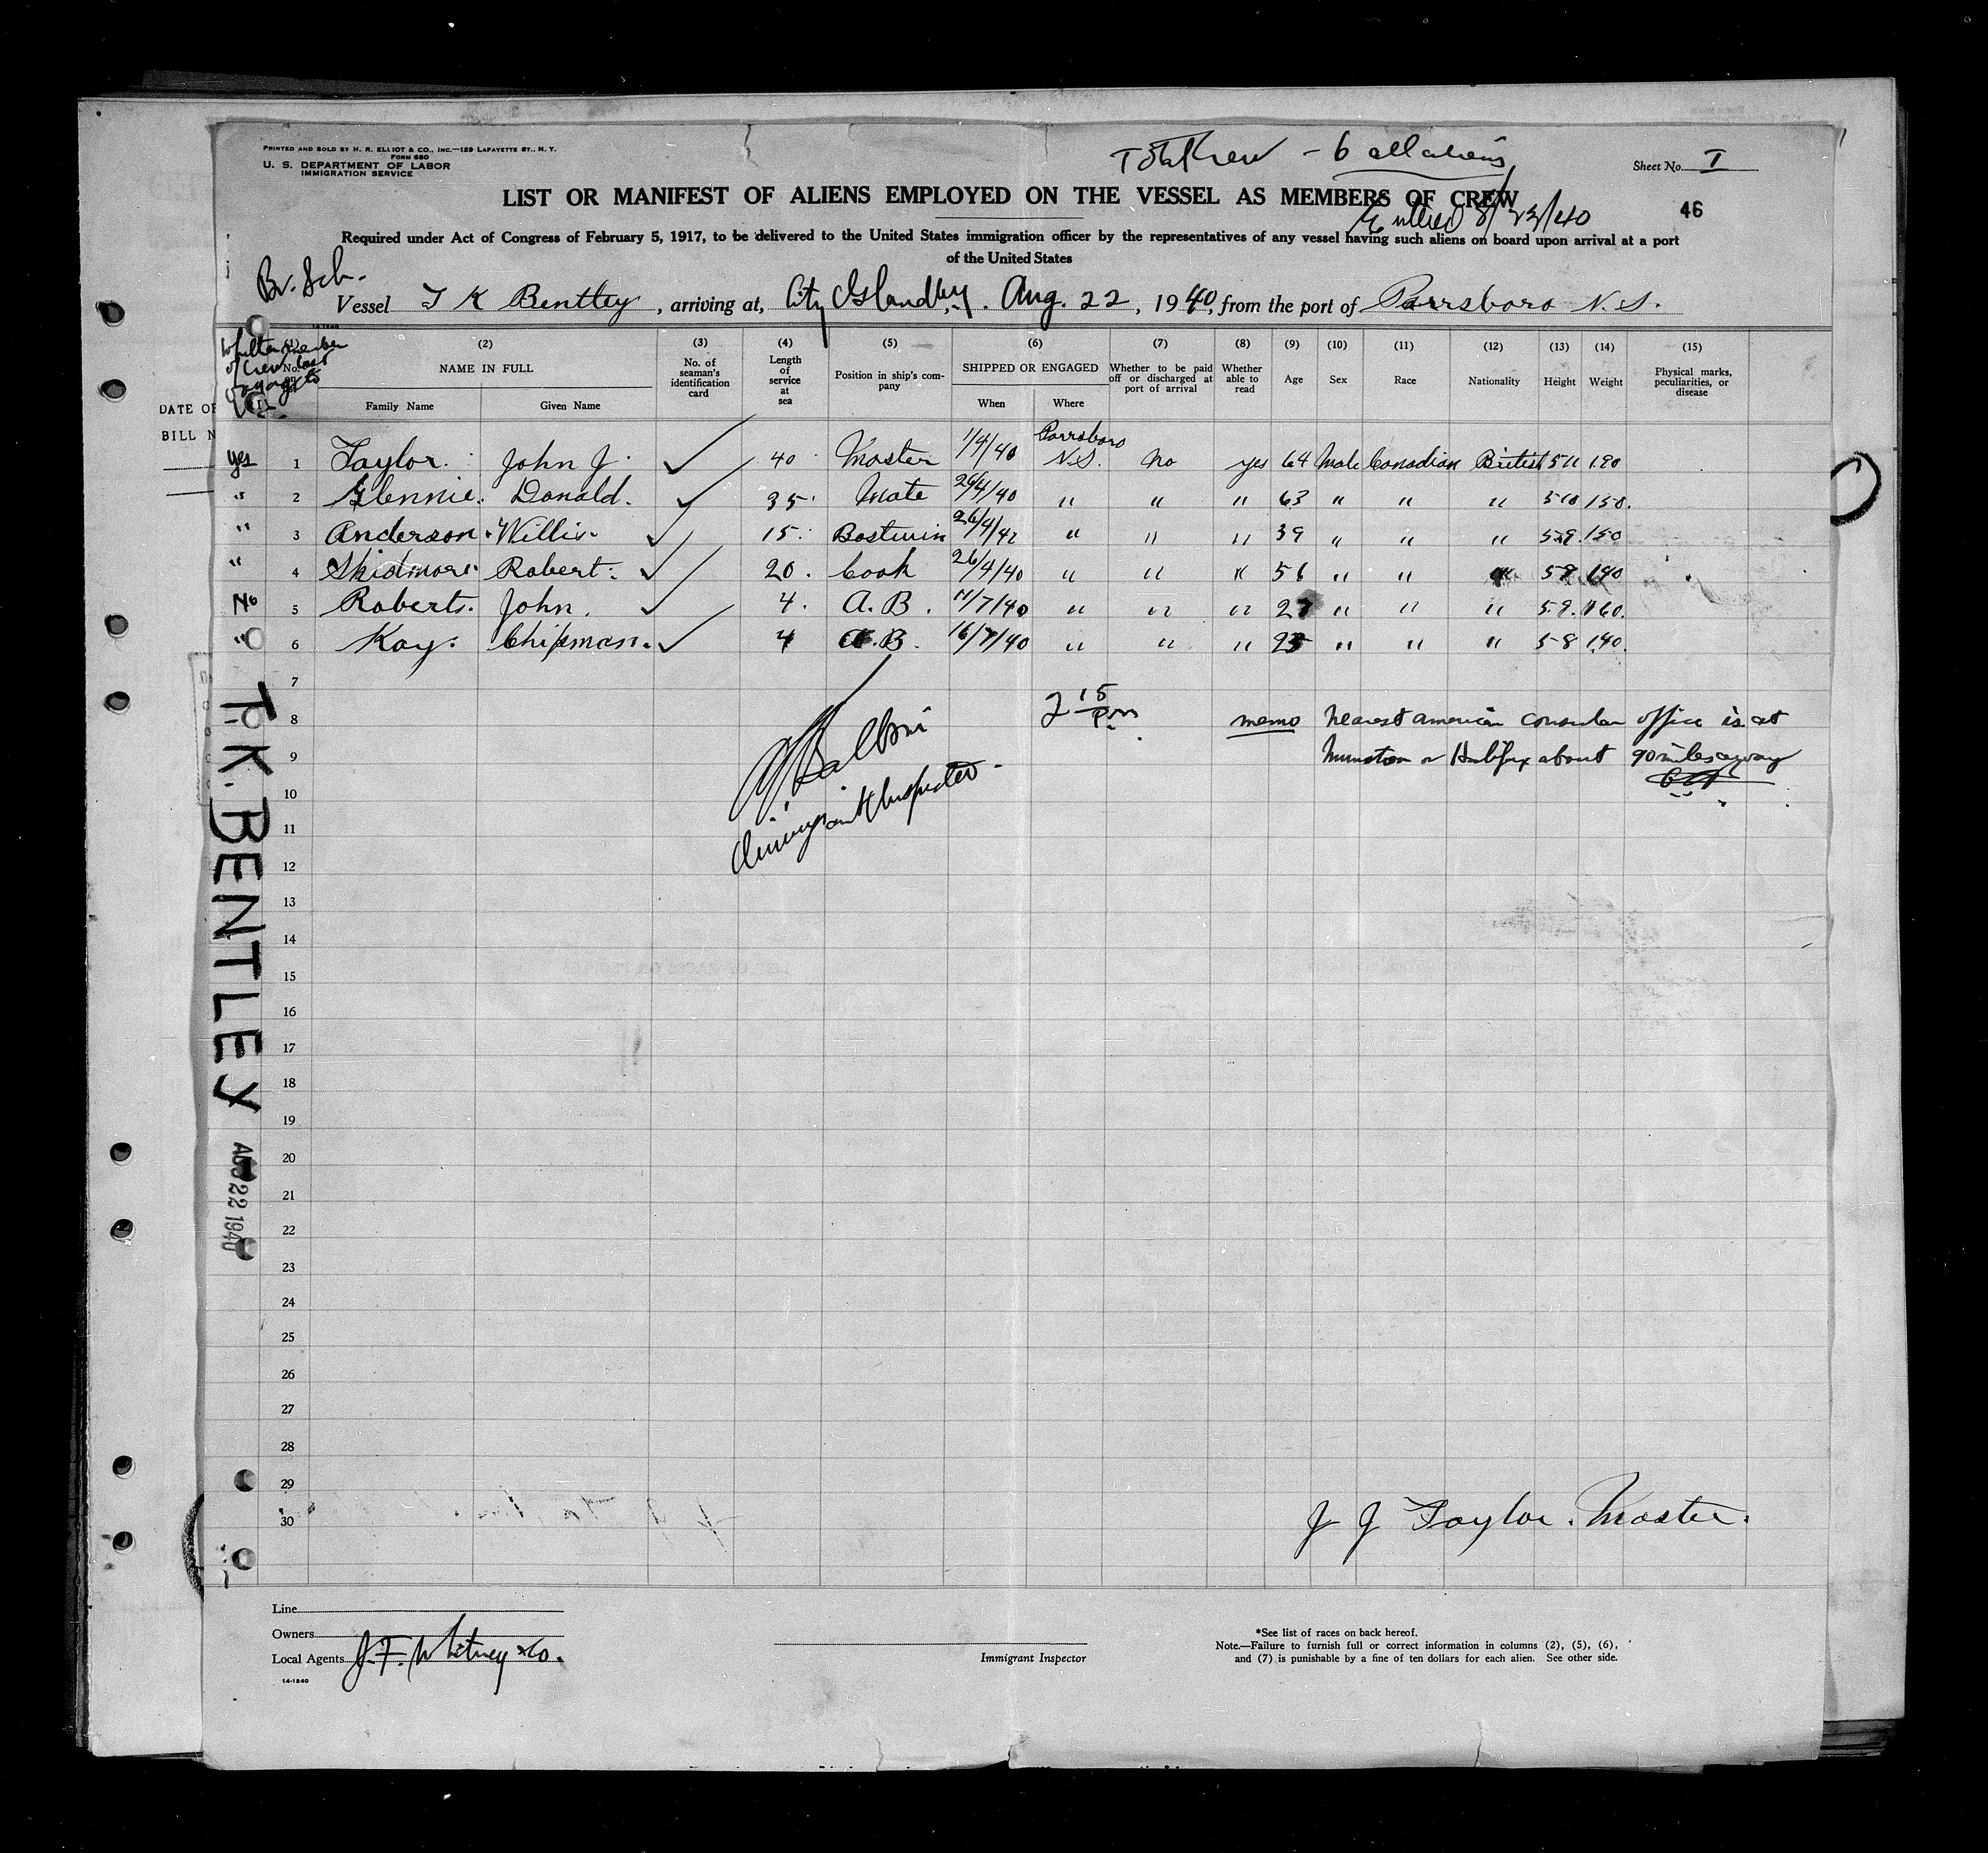 PRINTED AND SOLD BY H. R. ELLIOT & CO., INC.—129 LAFAYETTE ST., N. Y.
FORM 680
U. S. DEPARTMENT OF LABOR
IMMIGRATION SERVICE
Total Crew - 6 all aliens
Sheet No. I
LIST OR MANIFEST OF ALIENS EMPLOYED ON THE VESSEL AS MEMBERS OF CREW
Entered 8/23/40
46
Required under Act of Congress of February 5, 1917, to be delivered to the United States immigration officer by the representatives of any vessel having such aliens on board upon arrival at a port
of the United States
Br. Sch.
Vessel T K Bentley, arriving at, City Island N.Y. Aug. 22, 1940, from the port of Parrsboro N.S.
14-1240
Whether member of crew last voyage to U.S.
(1) (2) (3) (4) (5) (6) (7) (8) (9) (10) (11) (12) (13) (14) (15)
No. NAME IN FULL No. of seaman's identification card Length of service at sea Position in ship's company SHIPPED OR ENGAGED Whether to be paid off or discharged at port of arrival Whether able to read Age Sex Race Nationality Height Weight Physical marks, peculiarities, or disease
Family Name Given Name When Where
DATE OF
BILL N
Yes 1 Taylor. John J. ✓ 40 Master 1/4/40 Parrsboro N.S. No yes 64 Male Canadian British 5 11 190
" 2 Glennie. Donald. ✓ 35 Mate 26/4/40 " " " 63 " " " 5 10 150.
" 3 Anderson. Willis. ✓ 15. Bostwin 26/4/42 " " " 39 " " " 5-9. 150
" 4 Skidmore. Robert. ✓ 20. Cook 26/4/40 " " " 56 " " " 5 9 140
No 5 Roberts. John. ✓ 4. A.B. 11/7/40 " " " 27 " " " 5-9. 160.
" 6 Kay. Chipman. ✓ 4 A.B. 16/7/40 " " " 25 " " " 5-8 140.
7
8
9
10
11
12
13
14
15
16
17
18
19
20
21
22
23
24
25
26
27
28
29
30
2 15 P.m
memo nearest american consular office is at
Munston or Halifax about 90 miles away
Balbni
Immigrant Inspector
T. K. BENTLEY
AUG 22 1940
J J Taylor. Master.
Line
Owners
Local Agents J. F. Whitney & Co.
14-1240
Immigrant Inspector
*See list of races on back hereof.
Note.—Failure to furnish full or correct information in columns (2), (5), (6),
and (7) is punishable by a fine of ten dollars for each alien. See other side.